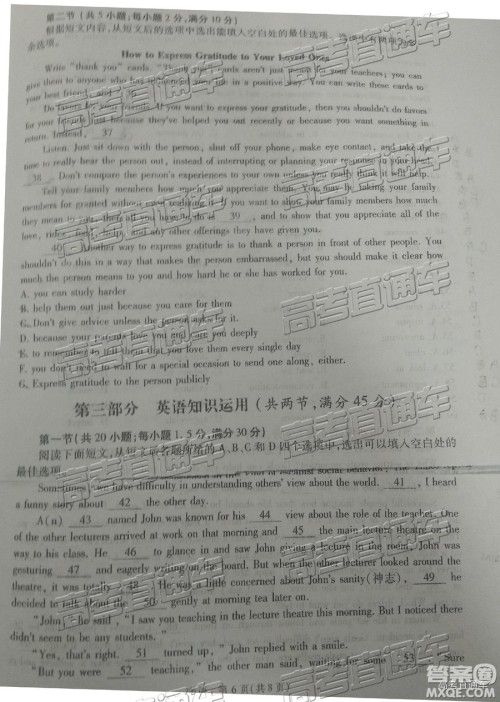 第二节(共5小题;每小题2分,满分10分)
根据短文内容,从短文后的选项中选出能填入空白处的最佳选项。选项中有两项为多
余选项。
How to Express Gratitude to Your Loved Ones
Write "thank you" cards. "Thank you" cards aren't just for your teachers; you can
give them to anyone who has in a positive way. You can write these cards to
your best friend and 36
Do favors for your friends. If you want to express your gratitude, then you shouldn't do favors
for your friends just because they've helped you out recently or because you want something in
return. Instead, 37
Listen. Just sit down with the person, shut off your phone, make eye contact, and take the
time to really hear the person out, instead of interrupting or planning your response to your friend.
38 . Don't compare the person's experiences to your own unless you really think it will help.
Tell your family members how much you appreciate them. Nobody said that your family
members are forbidden from It's important to show your family members how much
they mean to you, that you do as 39 , and to show that you appreciate all of the
love, rides, food, help any other offerings they have given you.
40 . Another way to express gratitude is to thank a person in front of other people. You
shouldn't do this in a way that makes the person embarrassed, but you should make it clear how
much the person means to you and how hard he or she has worked for you.
A. you can study harder
B. help them out just because you care for them
C. Don't give advice unless the person asks for it.
D. because your parents love you and care you deeply
E. to remember to tell them that you love them every single day
F. you don't have to wait for a special occasion to send one along, either.
G. Express gratitude to the person publicly
第三部分 英语知识运用(共两节,满分45分)
第一节(共20小题;每小题1.5分,满分30分)
阅读下面短文,从短文后各题所给的A、B、C和D四个选项中,选出可以填入空白处的
最佳选项。
Sometimes, we have difficulty in understanding others' view about the world. 41 , I heard
a funny story about 42 the other day.
A(n) 43 named John was known for his 44 view about the role of the teacher. One
of the other lecturers arrived at work on that morning and 45 the main lecture theatre on the
way to his class. He 46 to glance in and saw John giving a lecture in the room. John was
gesturing 47 and eagerly writing on the board. But when the other lecturer looked around the
theatre, it was totally 48 . He was a little concerned about John's sanity(神志), 49 he
decided to talk about the 50 gently at morning tea later on.
"John," he said, "I saw you teaching in the lecture theatre this morning. But I noticed there
didn't seem to be any students."
"Yes, that's right, 51 turned up," John replied with a smile.
"But you were 52 teaching," the other man stated, waiting for some 53 . Sure
第6页(共8页)
高考直通车
答案圈
MXQE.COM